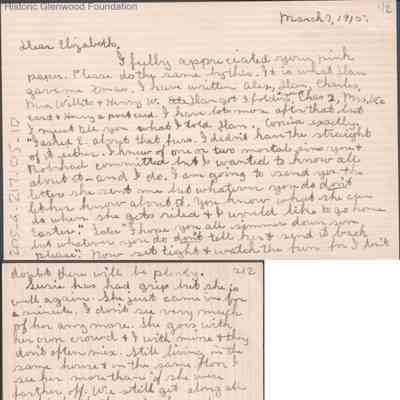 Historic Glenwood Foundation
1/2
March 7, 1915.
Dear Elizabeth,
I fully appreciated your pink
paper. Please do thy same by this. It is what Ilan
gave me Xmas. I have written Alex, Ilan, Charles,
Mrs. Willits + Henry W. Ilan got 1 folder, Chas 2, Mrs.
card + Henry a post card. I have lots more after that but
I must tell you what I told Ilan.
I asked E. about that fuss. I didn't have the straight
of it either. I knew of one or two mortal sins you +
Rob had committed but I wanted to know all
about it - and I do. I am going to send you the
letter she sent me but whatever you do don't
let her know about it. You know what she can
do when she gets riled + I would like to go home
Easter. Later I hope you all simmer down you
but whatever you do don't tell her + send it back
please. Now set tight + watch the fun for I don't
205-a-217-015-10
doubt there will be plenty.
2/2
Susie has had grip but she is
well again. She just came in for
a minute. I don't see very much
of her any more. She goes with
her own crowd + I with mine + they
don't often mix. Still living in the
same house + on the same floor I
see her more than if she were
farther off. We still get along all